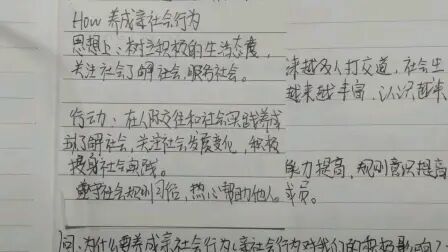 How 养成亲社会行为
思想上：树立积极的生活态度，
关注社会了解社会，服务社会。
越及人打交道，社会生
越来越丰富，认识越来
行动：在人际交往和社会实践养成
主动了解社会，关注社会发展变化，积极
投身社会实践。
能力提高，规则意识提高
遵守社会规则习俗，热心帮助他人。
成员。
问：为什么要养成亲社会行为（亲社会行为对我们的积极影响）？